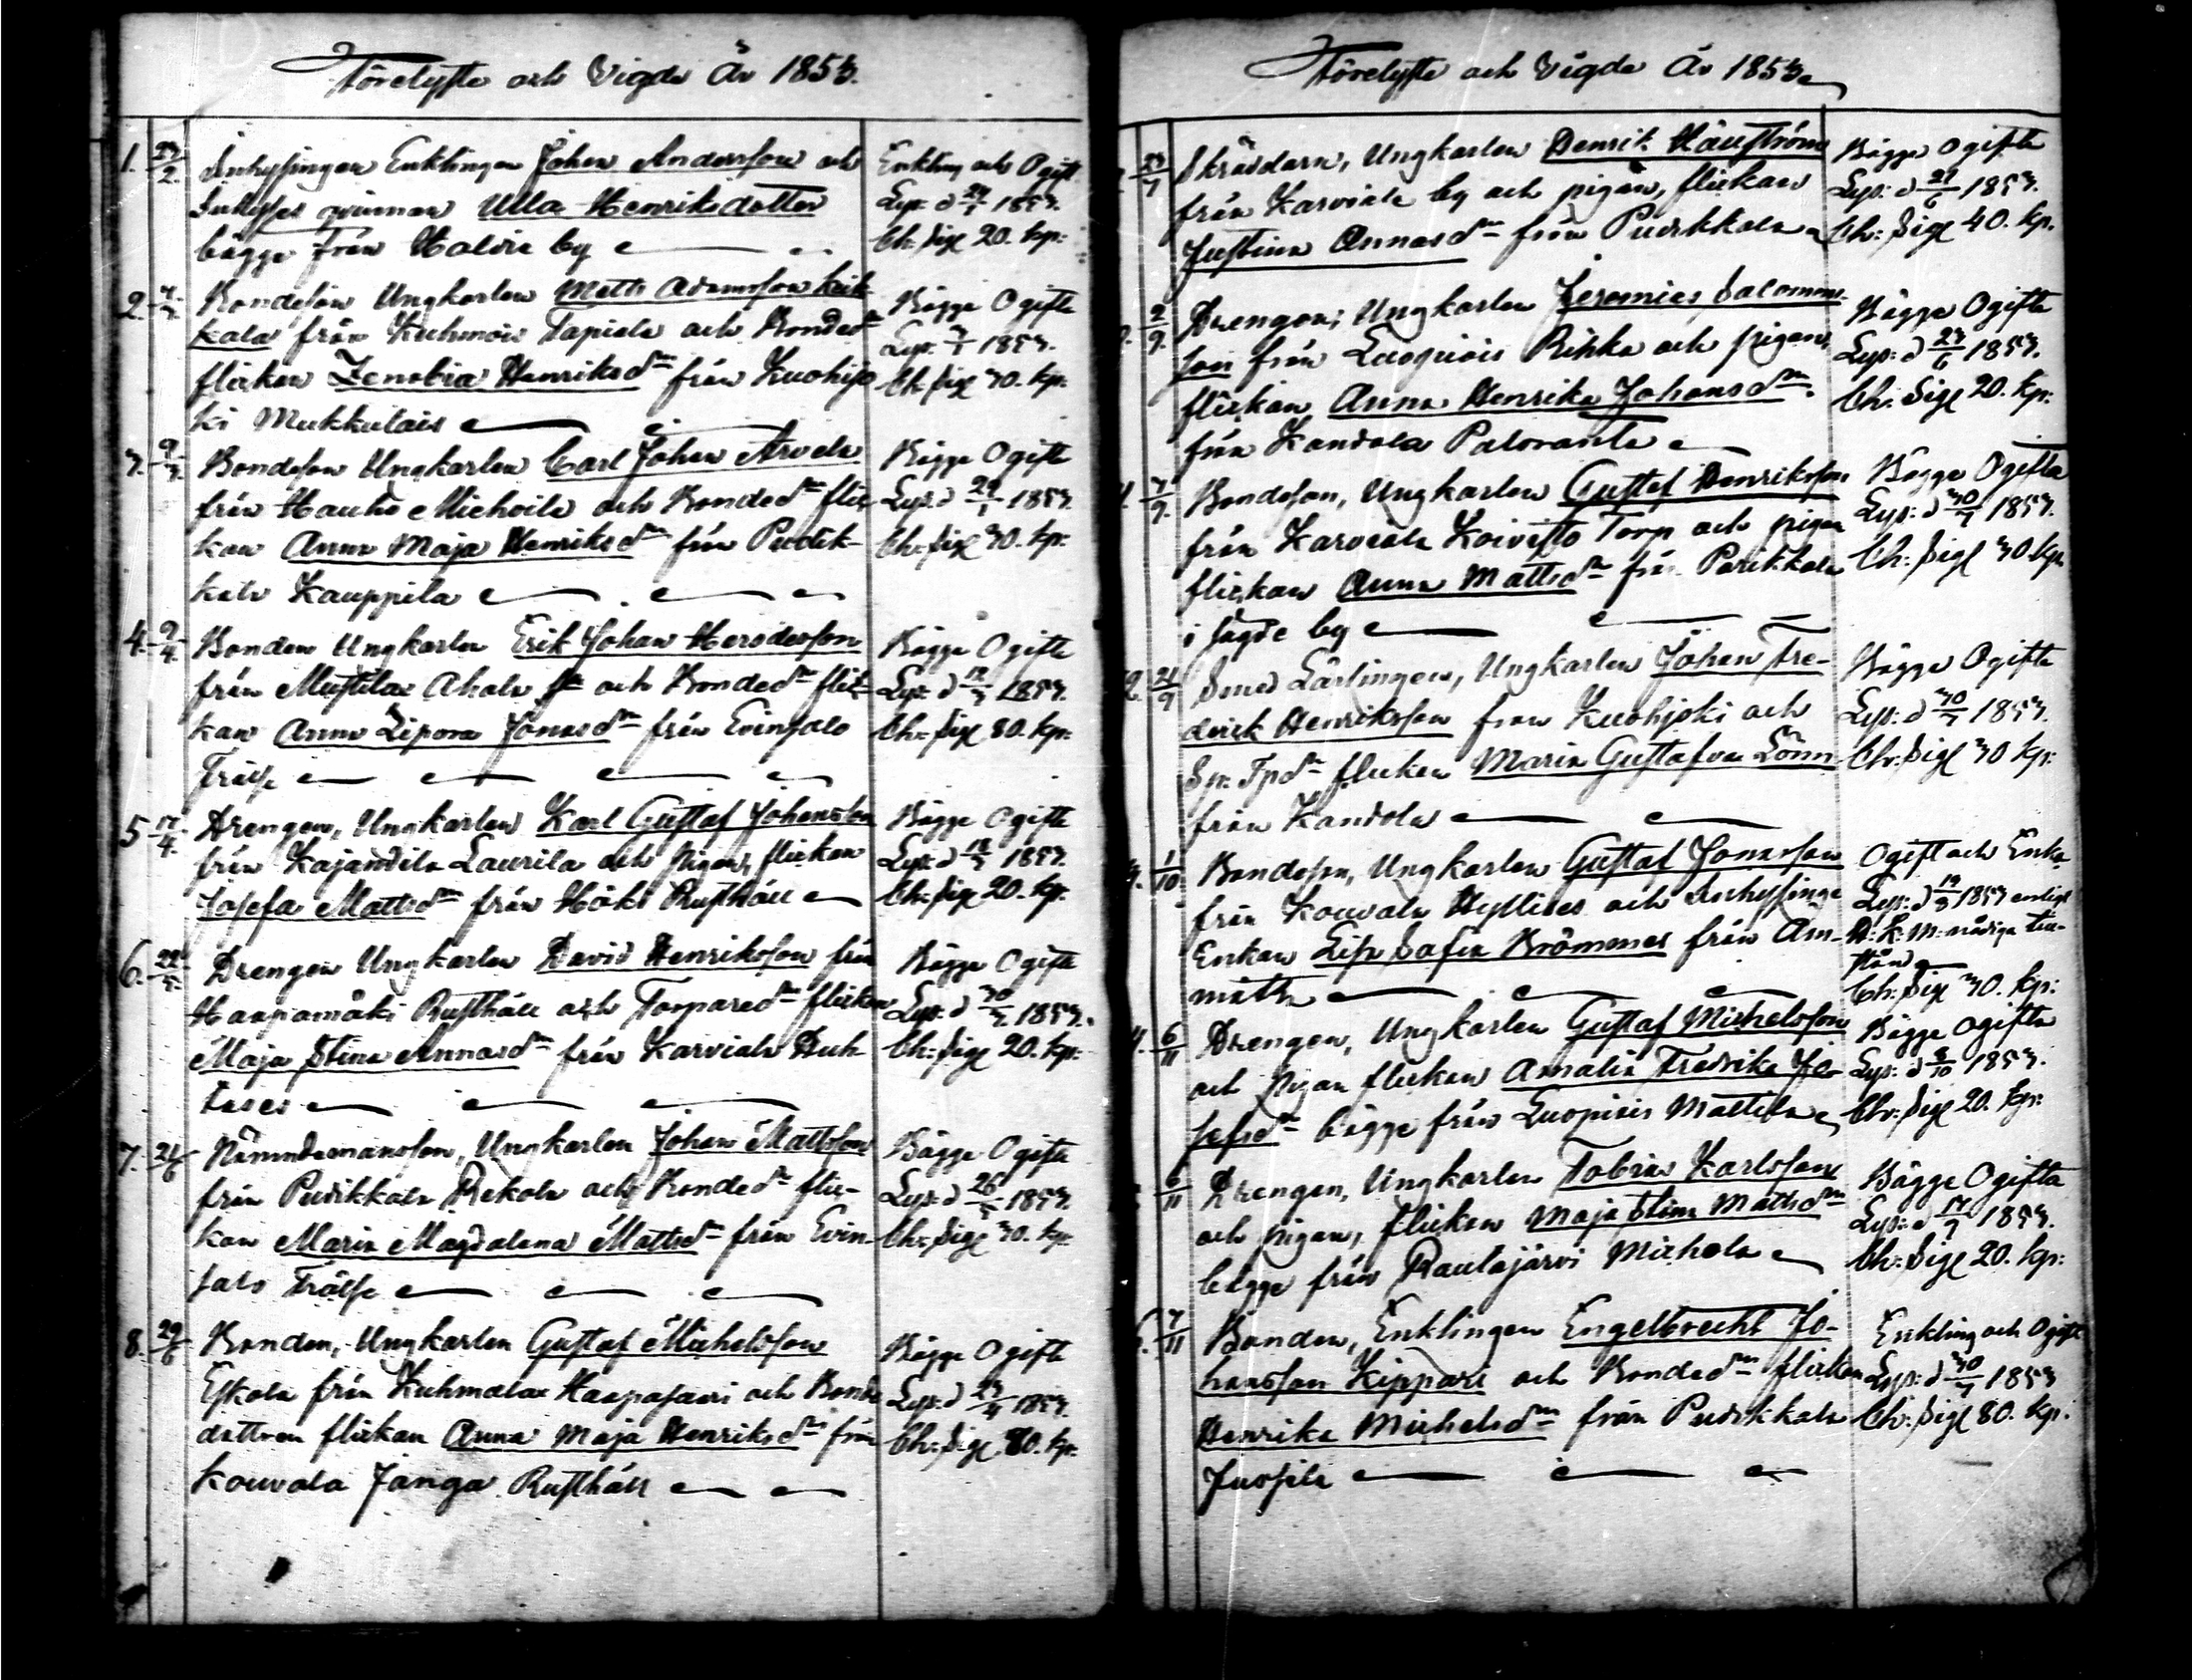 Förelyste och Vigde År 1853.
1. 23/2. Inhysingen Enklingen Johan Andersson och
Inhyses qvinnan Ulla Henriksdotter
bägge från Holvia by
Enkling och Ogift
Lyst d 1853.
Ch: Sigl 20. kp:
2. Bondeson Ungkarlen Matts Adamsson Keik-
kala från Kuhmois Tapiola och Bonded
flickan Zenobia Henriksd från Kuohijo
ki Mukkulais
Bägge Ogifte
Lyst. 1853.
Ch: Sigl 30. kp:
3. 9/3 Bondeson Ungkarlen Carl Johan Arvela
från Hauho Miehoila och Bonded flic-
kan Anna Maja Henriksd från Pudik-
kala Kauppila
Bägge Ogifte
Lyst d 1853.
Ch: Sigl 30. kp:
4. 9/4. Bonden Ungkarlen Erik Johan Herodesson
från Mustila Ahola och Bonded flic-
kan Anna Zipora Jonasd från Evinsalo
Frälse
Bägge Ogifte
Lyst d 12/3 1853.
Ch: Sigl 80. kp:
5 17/4. Drengen, Ungkarlen Karl Gustaf Johansson
från Kajandila Laurila och Pigan, flickan
Josefa Mattsd från Höki Rusthåll
Bägge Ogifte
Lyst d 18/3 1853.
Ch: Sigl 20. kp:
6. Drengen Ungkarlen David Henriksson från
Haapamäki Rusthåll och Torpared flickan
Maja Stina Annasd från Karviala Huh-
tases
Bägge Ogifte
Lyst d 1853.
Ch: Sigl 20. kp:
7. 21/6 Nämndemansson, Ungkarlen Johan Mattsson
från Pudikkala Rekola och Bonded flic-
kan Maria Magdalena Mattsd från Evin-
salo Frälse
Bägge Ogifte
Lyst d 26/5 1853.
Ch: Sigl 30. kp:
8. 29/6 Bonden, Ungkarlen Gustaf Michelsson
Eskola från Kuhmala Haapasaari och Bonde
dottren flickan Anna Maja Henriksd från
Kouvala Janga Rusthåll
Bägge Ogifte
Lyst d 23/4 1853.
Ch: Sigl 80. kp:
Förelyste och Vigde År 1853
23/7 Skräddarn, Ungkarlen Henrik Häuström
från Karviala by och pigan, flickan
Justina Annasd från Pudikkala
Bägge Ogifte
Lyst d 1853.
Ch: Sigl 40. kp.
2/9. Drengen, Ungkarlen Jeremias Salomons-
son från Luopiois Rihko och pigan,
flickan Anna Henrika Johansd
från Kandola Palovante
Bägge Ogifte
Lyst d 23/6 1853.
Ch: Sigl 20. kp:
3/9. Bondeson, Ungkarlen Gustaf Henriksson
från Karviala Koivisto Torp och pigan
flickan Anna Mattsd från Pudikkala
i sagde by
Bägge Ogifta
Lyst: d 30/7 1853.
Ch: Sigl 30 kp
21/9 Smed Lärlingen, Ungkarlen Johan Fre-
derik Henriksson från Kuohijoki och
Sp. Tpd flickan Maria Gustafva Lönn
från Kandola
Bägge Ogifte
Lyst: d 30/7 1853.
Ch: Sigl 30 kp:
1/10 Bondeson, Ungkarlen Gustaf Jonasson
från Kouvala Hyllises och Inhysinge
Enkan Lisa Safia Brömmes från Äm-
mätsä
Ogift och Enka
Lyst: d 1853 enligt
H: K: M: nådiga till-
stånd
Ch: Sigl 30. kp:
6/11 Drengen, Ungkarlen Gustaf Michelsson
och Pigan flickan Amalia Fredrika Jo-
sefsd bägge från Luopiois Mattila
Bägge Ogifta
Lyst: d 8/10 1853.
Ch: Sigl 20. kp:
6/11 Drengen, Ungkarlen Tobias Karlsson
och pigan, flickan Maja Stina Mattsd
bägge från Rautajärvi Michola
Bägge Ogifta
Lyst: d 1853.
Ch: Sigl 20. kp:
7/11 Bonden, Enklingen Engelbrecht Jo-
hansson Kippari och Bonded flickan
Henrika Michelsd från Pudikkala
Jussila
Enkling och Ogift
Lyst: d 1853
Ch: Sigl 80. kp: